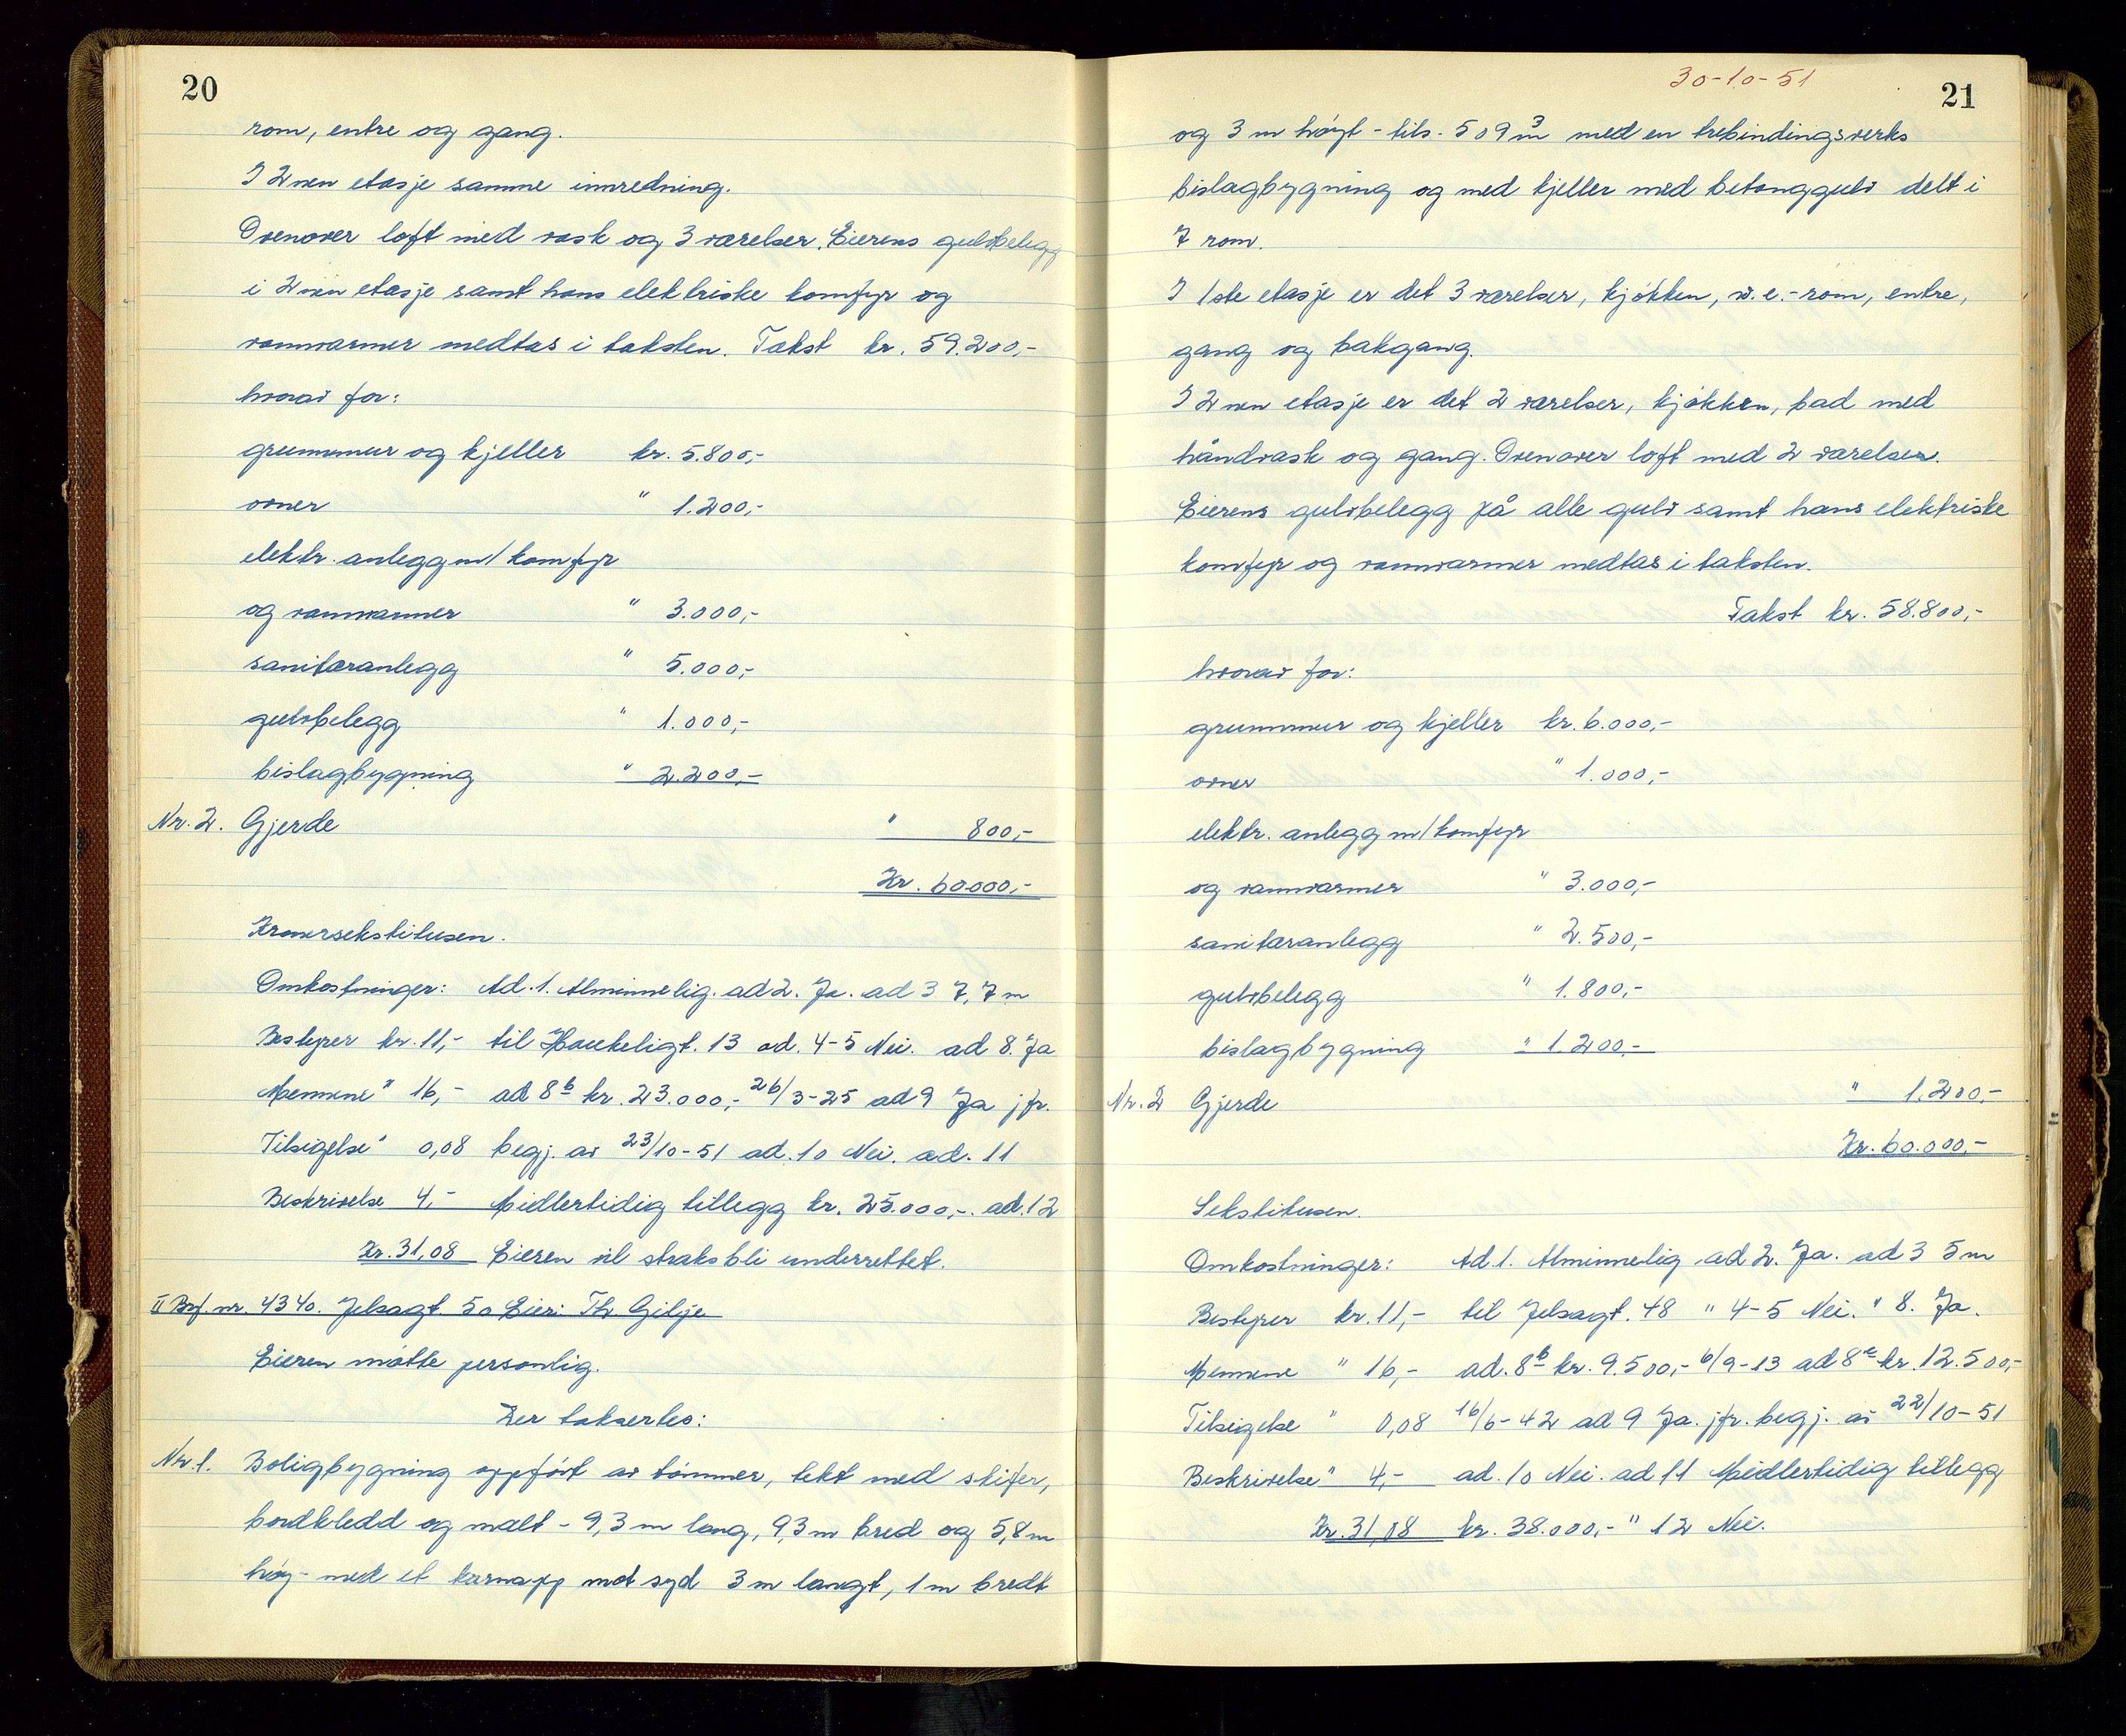 20
rom, entre og gang.
I 2nen etasje samme innredning.
Ovenover loft med vask og 3 værelser. Eierens gulvbelegg
i 2nen etasje samt hans elektriske komfyr og
vannvarmer medtas i taksten. Takst kr. 59.200,-
hvorav for:
grunnmur og kjeller kr. 5.800,-
ovner " 1.200,-
elektr. anlegg m/komfyr
og vannvarmer " 3.000,-
sanitæranlegg " 5.000,-
gulvbelegg " 1.000,-
bislagbygning " 2.200,-
Nr. 2. Gjerde " 800,-
Kr. 60.000,-
Kronersekstitusen.
Omkostninger: Ad. 1. Alminnelig. ad 2. Ja. ad 3 7,7 m
Bestyrer kr. 11,- til Haukeligt. 13 ad. 4-5 Nei. ad 8. Ja
Mennene " 16,- ad 8b kr. 23.000,- 26/3-25 ad 9 Ja jfr.
Tilsigelse " 0,08 begj. av 23/10-51 ad. 10 Nei. ad. 11
Beskrivelse 4,- Midlertidig tillegg kr. 25.000,-. ad. 12
Kr. 31,08 Eieren vil straks bli underrettet.
II Brf. nr. 4340. Jelsagt. 50 Eier: Th. Gilje
Eieren møtte personlig.
Her taksertes:
Nr. 1. Boligbygning oppført av tømmer, tekt med skifer,
bordkledd og malt - 9,3 m lang, 9,3 m bred og 5,8 m
høy - med et karnapp mot syd 3 m langt, 1 m bredt
30-10-51
21
og 3 m høyt - tils. 509 m3 med en trebindingsverks
bislagbygning og med kjeller med betonggulv delt i
7 rom.
I 1ste etasje er det 3 værelser, kjøkken, w.c.-rom, entre,
gang og bakgang.
I 2nen etasje er det 2 værelser, kjøkken, bad med
håndvask og gang. Ovenover loft med 2 værelser.
Eierens gulvbelegg på alle gulv samt hans elektriske
komfyr og vannvarmer medtas i taksten.
Takst kr. 58.800,-
hvorav for:
grunnmur og kjeller kr. 6.000,-
ovner " 1.000,-
elektr. anlegg m/komfyr
og vannvarmer " 3.000,-
sanitæranlegg " 2.500,-
gulvbelegg " 1.800,-
bislagbygning " 1.200,-
Nr. 2 Gjerde " 1.200,-
Kr. 60.000,-
Sekstitusen.
Omkostninger: Ad 1. Alminnelig ad 2. Ja. ad 3 5 m
Bestyrer kr. 11,- til Jelsagt. 48 " 4-5 Nei. " 8. Ja.
Mennene " 16,- ad. 8b kr. 9.500,- 6/9-13 ad 8c kr. 12.500,-
Tilsigelse " 0,08 16/6-42 ad 9 Ja. jfr. begj. av 22/10-51
Beskrivelse " 4,- ad. 10 Nei. ad 11 Midlertidig tillegg
Kr. 31,08 kr. 38.000,- " 12 Nei.